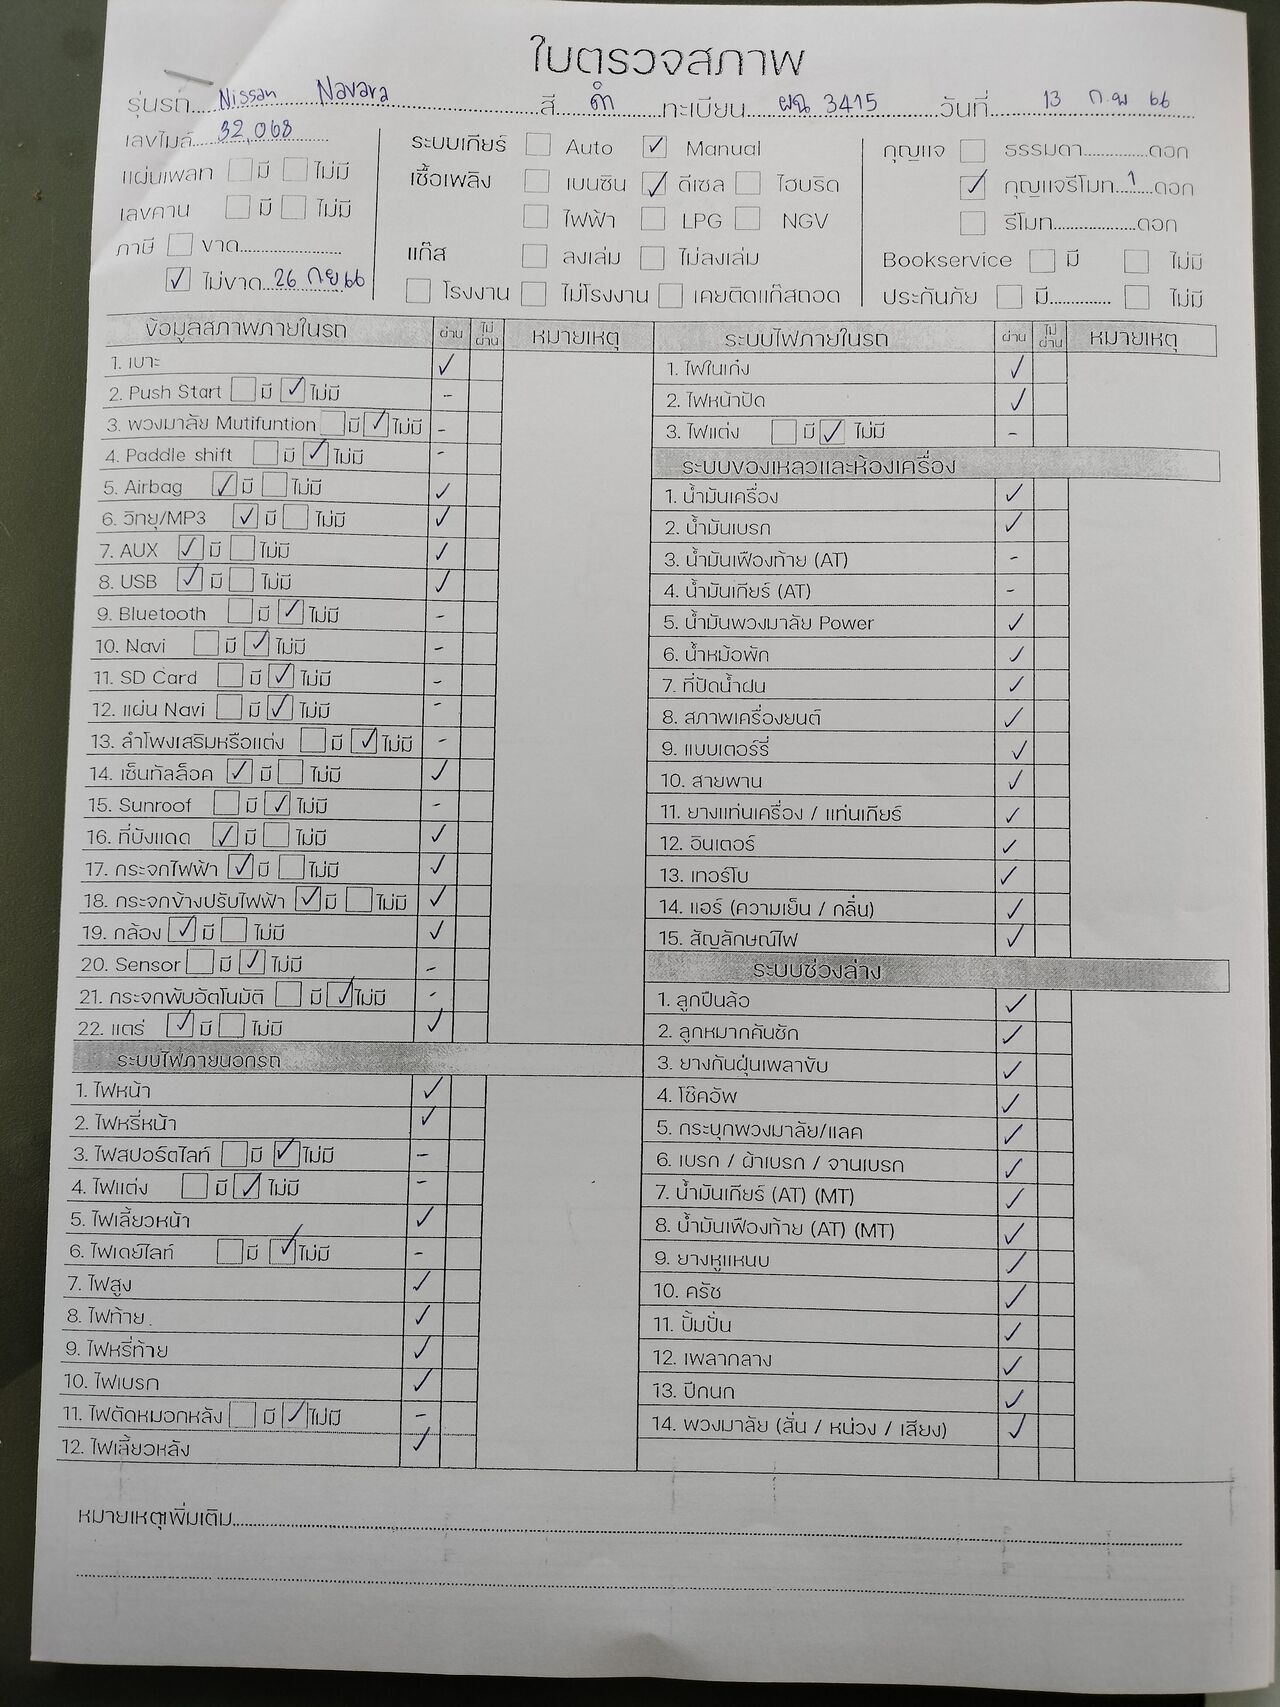 ใบตรวจสภาพ
รุ่นรถ Nissan Navara สี ดำ ทะเบียน ผฉ 3415 วันที่ 13 ก.พ 66
เลขไมล์ 32,068
แผ่นเพลท ☐ มี ☐ ไม่มี
เลขคาน ☐ มี ☐ ไม่มี
ภาษี ☐ ขาด
☑ ไม่ขาด 26 กย 66
ระบบเกียร์ ☐ Auto ☑ Manual
เชื้อเพลิง ☐ เบนซิน ☑ ดีเซล ☐ ไฮบริด
☐ ไฟฟ้า ☐ LPG ☐ NGV
แก๊ส ☐ ลงเล่ม ☐ ไม่ลงเล่ม
☐ โรงงาน ☐ ไม่โรงงาน ☐ เคยติดแก๊สถอด
กุญแจ ☐ ธรรมดา ดอก
☑ กุญแจรีโมท 1 ดอก
☐ รีโมท ดอก
Bookservice ☐ มี ☐ ไม่มี
ประกันภัย ☐ มี ☐ ไม่มี
ข้อมูลสภาพภายในรถ ผ่าน ไม่ผ่าน หมายเหตุ
1. เบาะ ✓
2. Push Start ☐ มี ☑ ไม่มี -
3. พวงมาลัย Mutifuntion ☐ มี ☑ ไม่มี -
4. Paddle shift ☐ มี ☑ ไม่มี -
5. Airbag ☑ มี ☐ ไม่มี ✓
6. วิทยุ/MP3 ☑ มี ☐ ไม่มี ✓
7. AUX ☑ มี ☐ ไม่มี ✓
8. USB ☑ มี ☐ ไม่มี ✓
9. Bluetooth ☐ มี ☑ ไม่มี -
10. Navi ☐ มี ☑ ไม่มี -
11. SD Card ☐ มี ☑ ไม่มี -
12. แผ่น Navi ☐ มี ☑ ไม่มี -
13. ลำโพงเสริมหรือแต่ง ☐ มี ☑ ไม่มี -
14. เซ็นทัลล็อค ☑ มี ☐ ไม่มี ✓
15. Sunroof ☐ มี ☑ ไม่มี -
16. ที่บังแดด ☑ มี ☐ ไม่มี ✓
17. กระจกไฟฟ้า ☑ มี ☐ ไม่มี ✓
18. กระจกข้างปรับไฟฟ้า ☑ มี ☐ ไม่มี ✓
19. กล้อง ☑ มี ☐ ไม่มี ✓
20. Sensor ☐ มี ☑ ไม่มี -
21. กระจกพับอัตโนมัติ ☐ มี ☑ ไม่มี -
22. แตร่ ☑ มี ☐ ไม่มี ✓
ระบบไฟภายนอกรถ
1. ไฟหน้า ✓
2. ไฟหรี่หน้า ✓
3. ไฟสปอร์ตไลท์ ☐ มี ☑ ไม่มี -
4. ไฟแต่ง ☐ มี ☑ ไม่มี -
5. ไฟเลี้ยวหน้า ✓
6. ไฟเดย์ไลท์ ☐ มี ☑ ไม่มี -
7. ไฟสูง ✓
8. ไฟท้าย ✓
9. ไฟหรี่ท้าย ✓
10. ไฟเบรก ✓
11. ไฟตัดหมอกหลัง ☐ มี ☑ ไม่มี -
12. ไฟเลี้ยวหลัง ✓
ระบบไฟภายในรถ ผ่าน ไม่ผ่าน หมายเหตุ
1. ไฟในเก๋ง ✓
2. ไฟหน้าปัด ✓
3. ไฟแต่ง ☐ มี ☑ ไม่มี -
ระบบของเหลวและห้องเครื่อง
1. น้ำมันเครื่อง ✓
2. น้ำมันเบรก ✓
3. น้ำมันเฟืองท้าย (AT) -
4. น้ำมันเกียร์ (AT) -
5. น้ำมันพวงมาลัย Power ✓
6. น้ำหม้อพัก ✓
7. ที่ปัดน้ำฝน ✓
8. สภาพเครื่องยนต์ ✓
9. แบบเตอร์รี่ ✓
10. สายพาน ✓
11. ยางแท่นเครื่อง / แท่นเกียร์ ✓
12. อินเตอร์ ✓
13. เทอร์โบ ✓
14. แอร์ (ความเย็น / กลิ่น) ✓
15. สัญลักษณ์ไฟ ✓
ระบบช่วงล่าง
1. ลูกปืนล้อ ✓
2. ลูกหมากคันชัก ✓
3. ยางกันฝุ่นเพลาขับ ✓
4. โช๊คอัพ ✓
5. กระบุกพวงมาลัย/แลค ✓
6. เบรก / ผ้าเบรก / จานเบรก ✓
7. น้ำมันเกียร์ (AT) (MT) ✓
8. น้ำมันเฟืองท้าย (AT) (MT) ✓
9. ยางหูแหนบ ✓
10. ครัช ✓
11. ปั้มปั่น ✓
12. เพลากลาง ✓
13. ปีกนก ✓
14. พวงมาลัย (สั่น / หน่วง / เสียง) ✓
หมายเหตุเพิ่มเติม